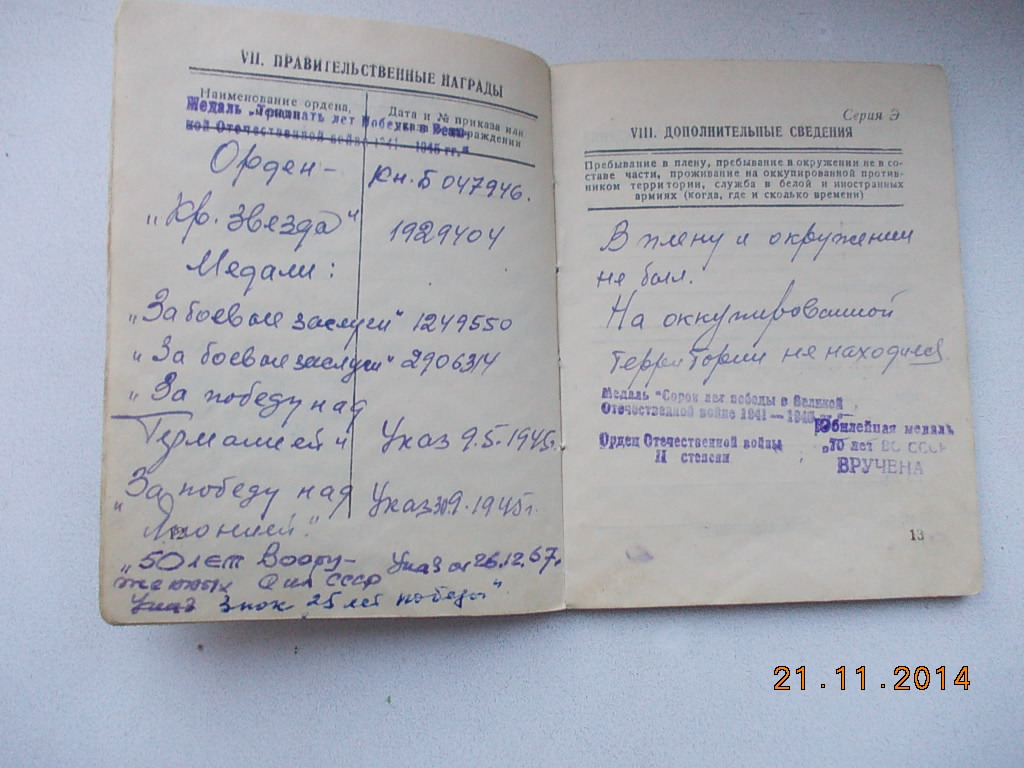 VII. ПРАВИТЕЛЬСТВЕННЫЕ НАГРАДЫ
Наименование ордена, Дата и № приказа или
Медаль „Тридцать лет Победы в Вели-
кой Отечественной войне 1941—1945 гг."
Орден – кн. Б 047946.
„Кр. звезда" 1929404
Медали:
„За боевые заслуги" 1249550
„За боевые заслуги" 2906314
„За победу над
Германией" Указ 9.5.1945г.
„За победу над Указ 30.9.1945г.
Японией."
12
„50 лет Воору- Указ от 26.12.67г.
женных Сил СССР
Указ Знак 25 лет победы"
Серия Э
VIII. ДОПОЛНИТЕЛЬНЫЕ СВЕДЕНИЯ
Пребывание в плену, пребывание в окружении не в со-
ставе части, проживание на оккупированной против-
ником территории, служба в белой и иностранных
армиях (когда, где и сколько времени)
В плену и окружении
не был.
На оккупированной
территории не находился
Медаль "Сорок лет победы в Великой
Отечественной войне 1941—1945 гг."
Орден Отечественной войны
II степени
Юбилейная медаль
„70 лет ВС СССР"
ВРУЧЕНА
13
21.11.2014